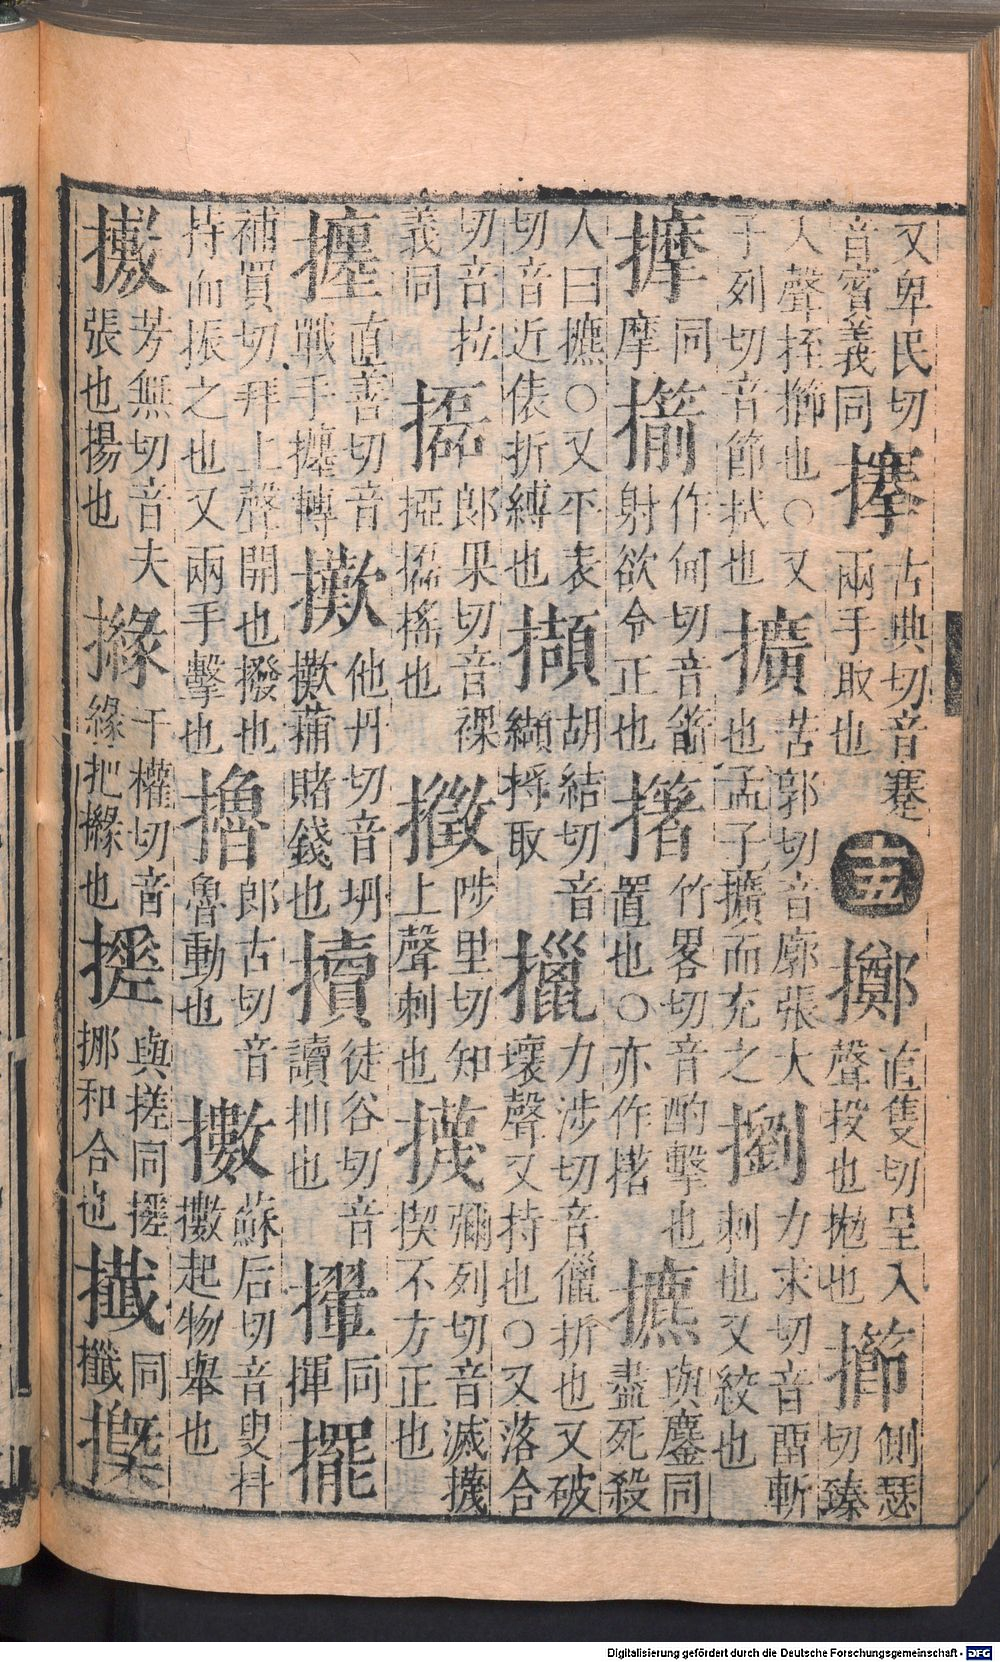 又卑民切
音賓義同
搴
古典切音蹇
兩手取也
十五
擲
直隻切呈入
聲投也拋也
擳
側瑟
切臻
入聲挃擳也○又
子列切音節拭也
擴
苦郭切音廓張大
也孟子擴而充之
劉
力求切音畱斬
刺也又絞也
𢳀
同
摩
擶
作甸切音箭
射欲令正也
撯
竹畧切音酌擊也
置也○亦作撯
攈
與鏖同
盡死殺
人曰攈○又平表
切音近俵折縛也
擷
胡結切音
纈捋取
擸
力涉切音儠折也又破
壞聲又持也○又落合
切音拉
義同
攭
郎果切音裸
掗攭搖也
㨖
陟里切知
上聲刺也
㩢
彌列切音滅㩢
㩢不方正也
㩥
直善切音
戰手㩥轉
擹
他丹切音坍
擹蒱賭錢也
擩
徒谷切音
讀抽也
撪
同
揮
擺
補買切拜上聲開也撥也
持而振之也又兩手擊也
擼
郎古切音
魯動也
擻
蘇后切音叟抖
擻起物舉也
𢿥
芳無切音夫
張也揚也
㩯
千權切音
緣把㩯也
搓
與搓同搓
挪和合也
㩥
同
攕
㩉
Digitalisierung gefördert durch die Deutsche Forschungsgemeinschaft - DFG